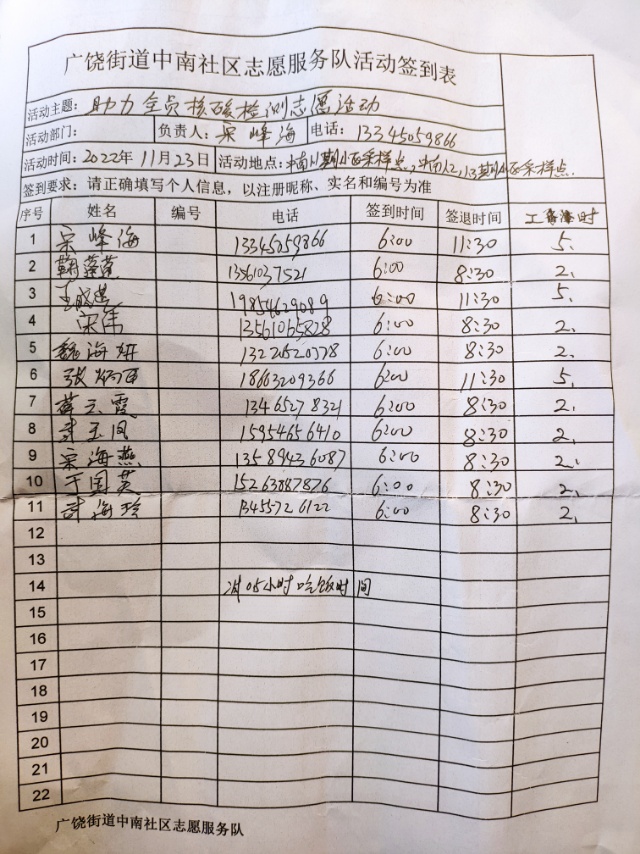 广饶街道中南社区志愿服务队活动签到表
活动主题: 助力全员核酸检测志愿活动
活动部门: 负责人: 宋峰海 电话: 13345059866
活动时间: 2022年11月23日 活动地点: 小区采样点, 小区采样点.
签到要求: 请正确填写个人信息, 以注册昵称、实名和编号为准
序号 姓名 编号 电话 签到时间 签退时间 时
1 宋峰海 13345059866 6:00 11:30 5.
2 13561037521 6:00 8:30 2.
3 19854629089 6:00 11:30 5.
4 宋伟 13561065828 6:00 8:30 2.
5 魏海妍 13220520778 6:00 8:30 2.
6 张 18663209366 6:00 11:30 5.
7 云霞 13465278321 6:00 8:30 2.
8 玉凤 15954656410 6:00 8:30 2.
9 宋海燕 13589436087 6:00 8:30 2.
10 于国英 15263887876 6:00 8:30 2.
11 海玲 13455726122 6:00 8:30 2.
12
13
14 0.5小时吃饭时间
15
16
17
18
19
20
21
22
广饶街道中南社区志愿服务队